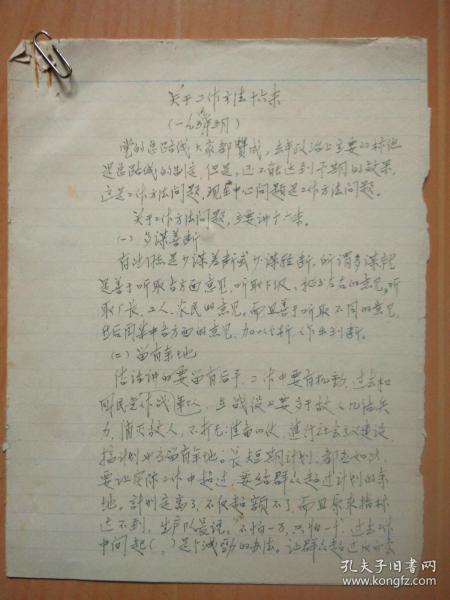 关于工作方法十六条
(一九五九年 月)
党的总路线大家都赞成,去年政治上主要的标志
是总路线的制定,但是,还不能达到予期的效果,
这是工作方法问题,现在中心问题是工作方法问题。
关于工作方法问题,主要讲十六条。
(一) 多谋善断
有些人总是少谋善断或少谋武断,所谓多谋就
是善于听取各方面意见,听取下级、左右的意见,听
取厂长、工人、农民的意见。而且善于听取不同的意见,
然后同集中各方面的意见,加以分析,作出判断。
(二) 留有余地
俗话讲的要留有后手,工作中要有机动,过去和
国民党作战 在战役上要多于敌人几倍兵
力,消灭敌人,不打无准备的仗,进行社会主义建设
搞计划也要留有余地。长短期计划,都是如此,
要让实际工作中超过,要给群众超过计划的余
地。计划定高了,不仅超额不了而且原来指标
达不到,生产队长说,不怕一万,只怕一 过去
中间起( )是个减劲的办法。让群众超过
孔夫子旧书网
kongfz.com